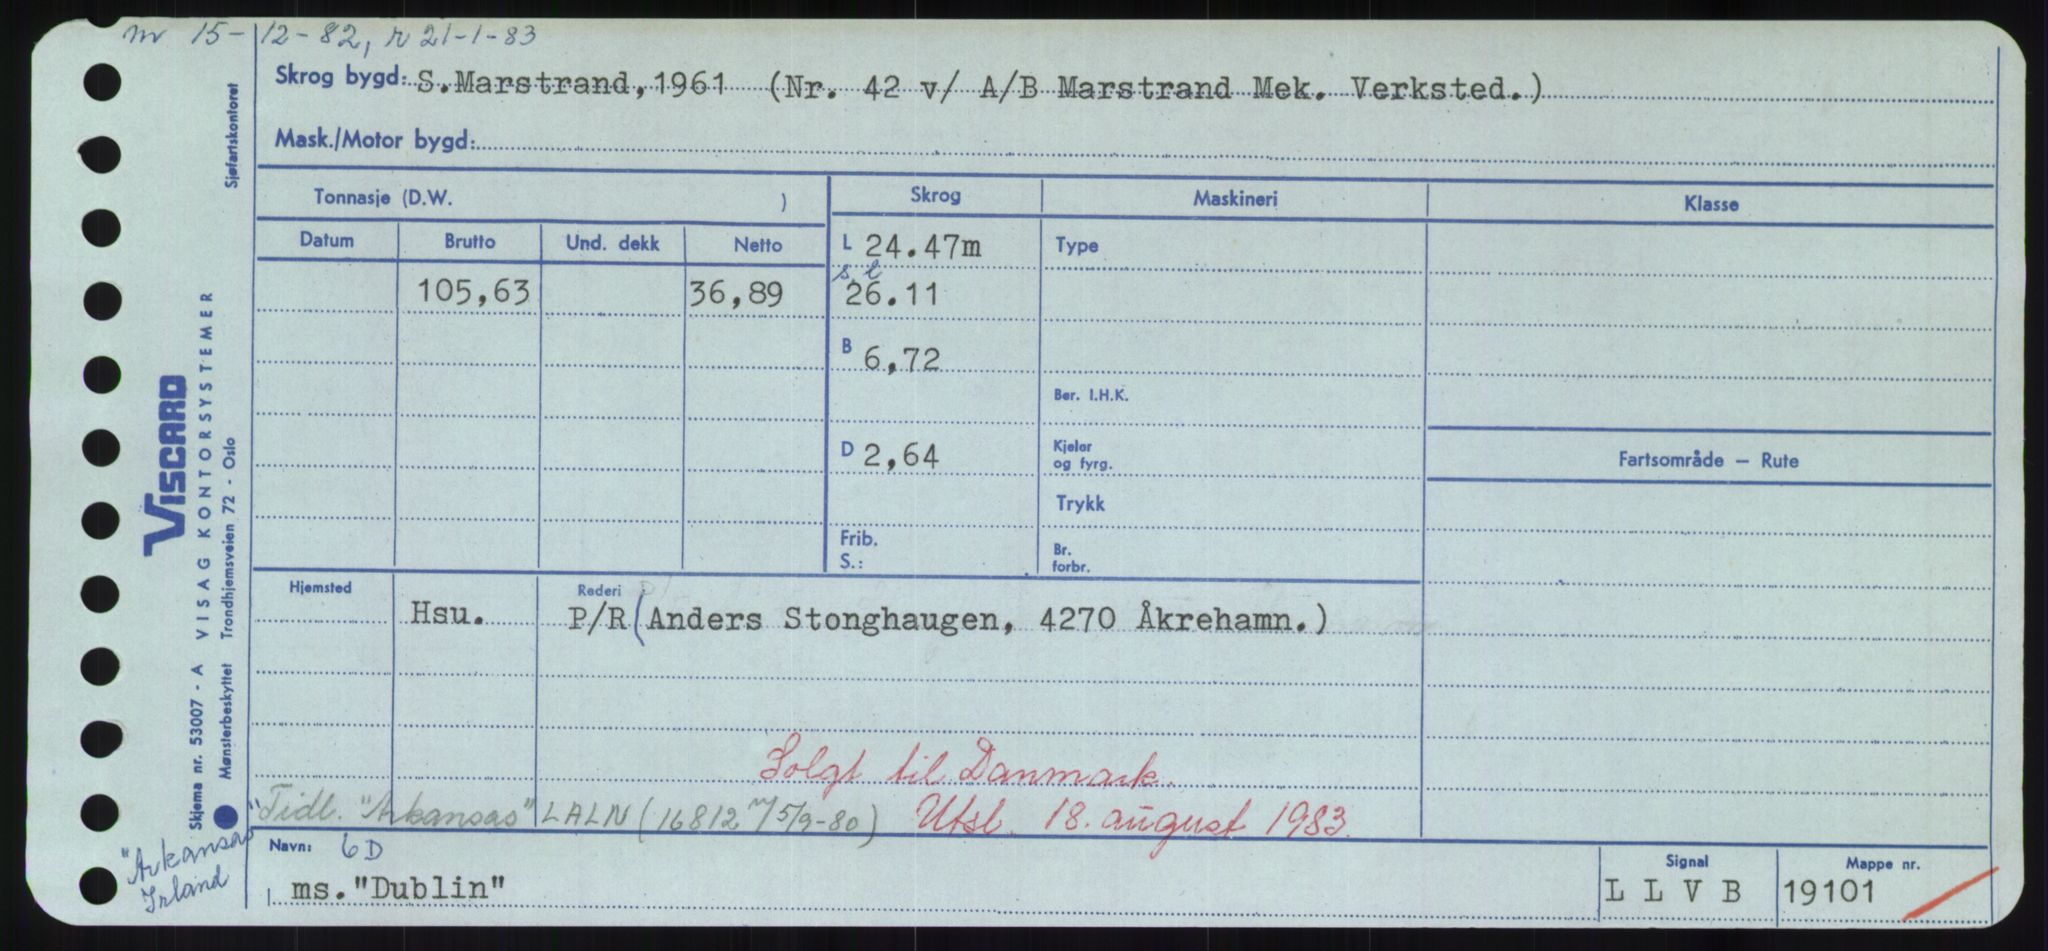 nr 15-12-82, r 21-1-83
Skrog bygd: S.Marstrand, 1961 (Nr. 42 v/ A/B Marstrand Mek. Verksted.)
Mask./Motor bygd:
Tonnasje (D.W. )
Skrog
Maskineri
Klasse
Datum
Brutto
Und. dekk
Netto
L 24.47m
Type
105,63
36,89
s l
26.11
B 6,72
Ber. I.H.K.
D 2,64
Kjeler
og fyrg.
Fartsområde – Rute
Trykk
Frib.
S.:
Br.
forbr.
Hjemsted
Rederi
Hsu.
P/R (Anders Stonghaugen, 4270 Åkrehamn.)
Solgt til Danmark.
Tidl. "Arkansas" LALN (16812 m/5/9-80)
Utsl. 18. august 1983.
Navn: 6D
ms. "Dublin"
Signal
L L V B
Mappe nr.
19101
Sjøfartskontoret
VISCARD
VISAG KONTORSYSTEMER
Trondhjemsveien 72 - Oslo
Skjema nr. 53007 - A
Mønsterbeskyttet
"Arkansas"
Irland